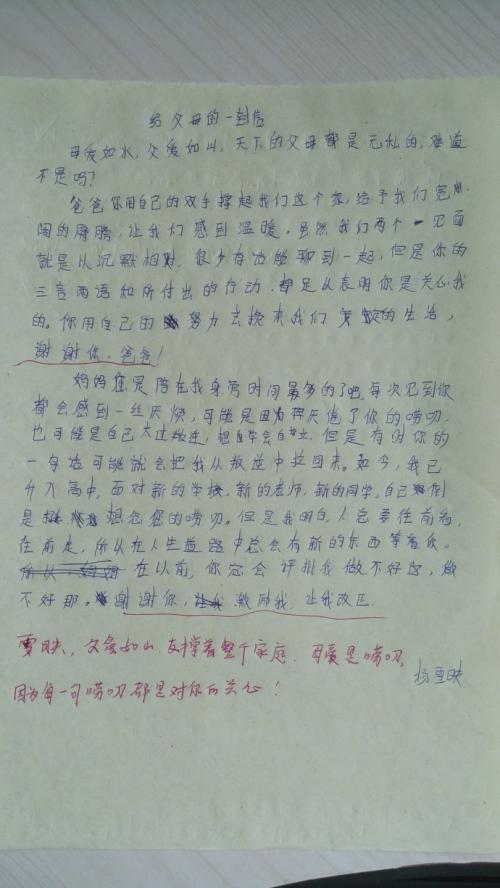 给父母的一封信
母爱如水,父爱如山,天下的父母都是无私的,难道
不是吗?
爸爸你用自己的双手撑起我们这个家,给予我们宽
阔的臂膀,让我们感到温暖。虽然我们两个一见面
就是以沉默相对,很少有话能聊到一起,但是你的
三言两语和所付出的行动,都足以表明你是关心我
的。你用自己的努力去换来我们的生活,
谢谢你,爸爸!
妈妈您是陪在我身旁时间最多的了吧,每次见到你
都会感到一丝厌烦,可能是因为厌倦了你的唠叨,
也可能是自己太过叛逆,想自己独立,但是有时你的
一句话可能就会把我从叛逆中拉回来。如今,我已
升入高中,面对新的学校,新的老师,新的同学,自己倒
是想念您的唠叨。但是我明白,人总要往前看,
往前走,所以在人生道路中总会有新的东西等着你。
在以前,你总会评批我做不好这,做
不好那。谢谢你,激励我,让我改正
雪映,父爱如山,支撑着整个家庭,母爱是唠叨,
因为每一句唠叨都是对你的关心!
杨雪映